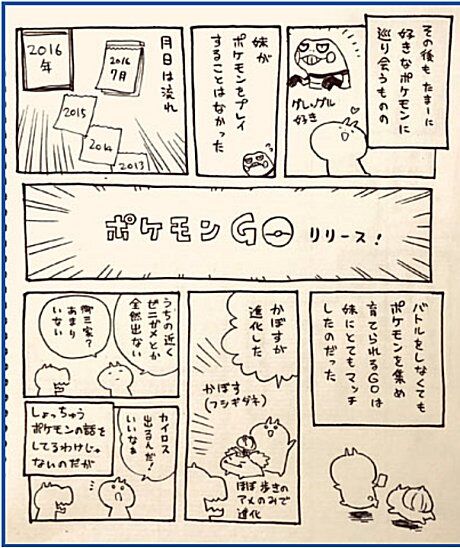 その後も たまーに
好きなポケモンに
巡り会うものの
グレッグル
好き
妹が
ポケモンをプレイ
することはなかった
月日は流れ
2016
年
2016
7月
2015
2014
2013
ポケモンGO リリース!
バトルをしなくても
ポケモンを集め
育てられるGOは
妹にとてもマッチ
したのだった
かぼすが
進化した
かぼす
(フシギダネ)
ほぼ歩きの
アメのみで
進化
うちの近く
ゼニガメとか
全然出ない
御三家?
あまり
いない
カイロス
出るんだ!
いいなぁ
しょっちゅう
ポケモンの話を
してるわけじゃ
ないのだが